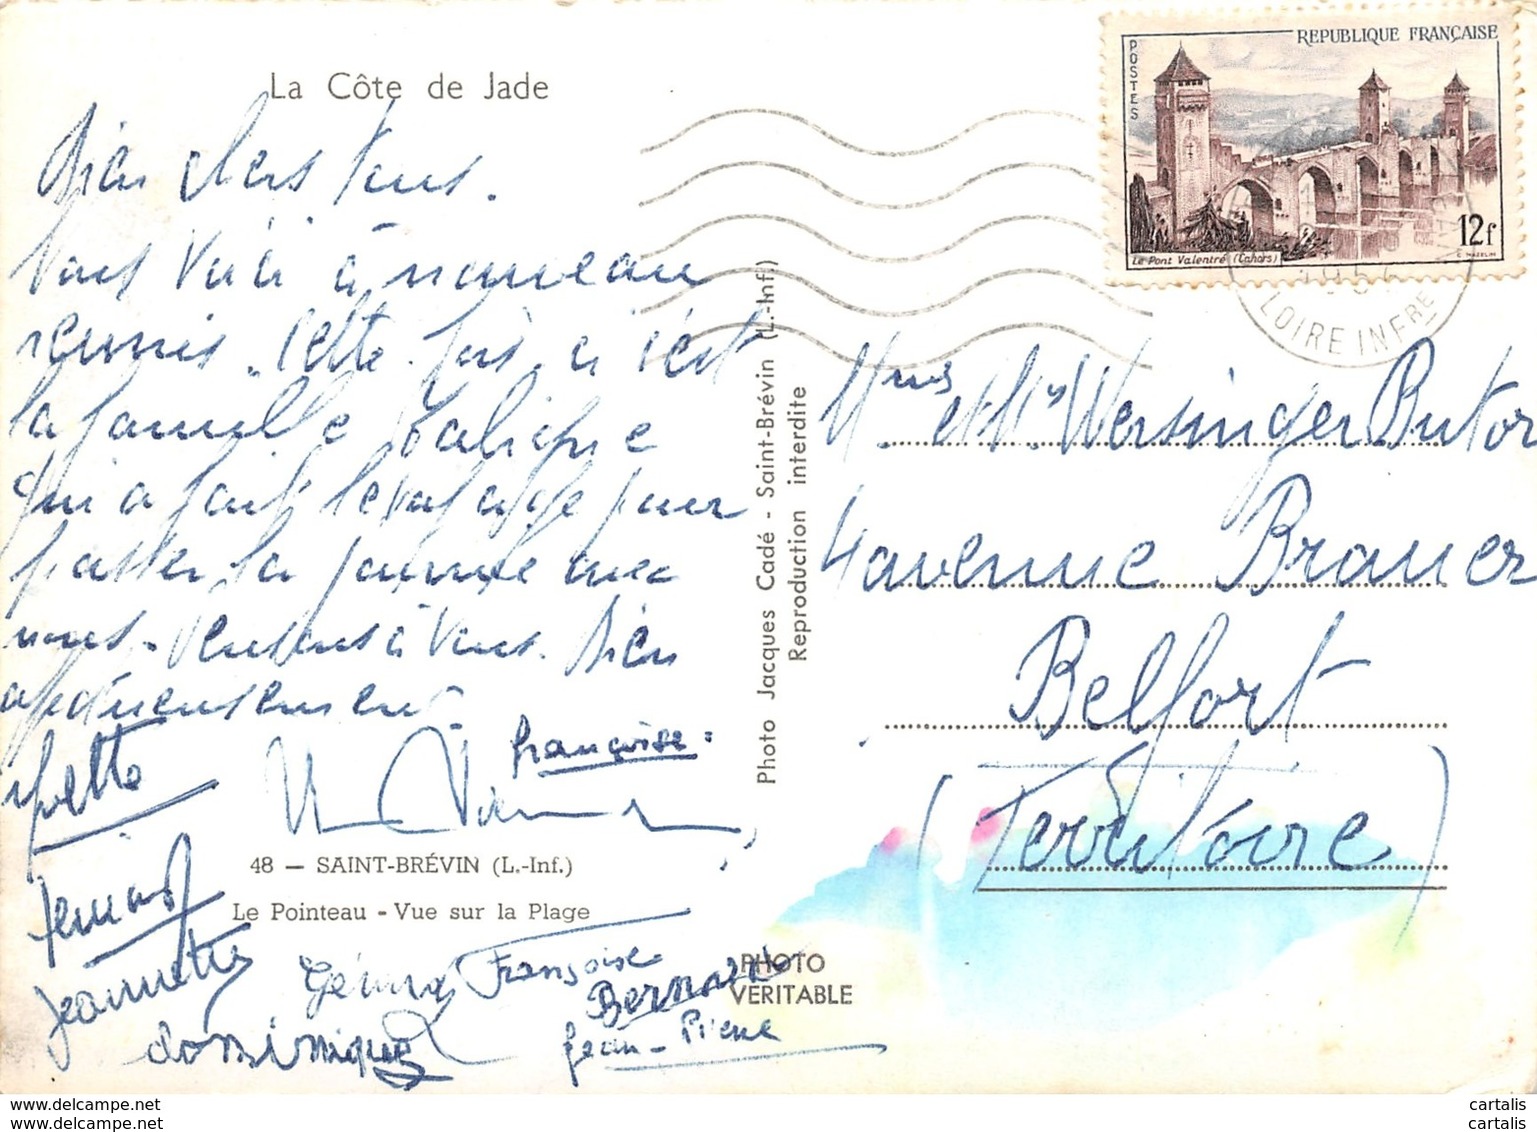 La Côte de Jade
Bien chers tous.
Vous Voici à nouveau
réunis. Cette fois, c'est
la famille
qui a fait le voyage pour
passer la journée avec
nous. Pensons à Vous. Bien
affectueusement.
Yvette
Françoise
48 — SAINT-BRÉVIN (L.-Inf.)
Le Pointeau - Vue sur la Plage
Jeannette
Gérard
Françoise
Bernard
Dominique
Jean-Pierre
PHOTO
VERITABLE
Photo Jacques Cadé - Saint-Brévin (L.-Inf.)
Reproduction interdite
POSTES
REPUBLIQUE FRANÇAISE
12f
Le Pont Valentré (Cahors)
LOIRE INFRE
Mmes et Mrs Wersinger Butor
4 avenue Brauer
Belfort
(Territoire)
jemcarte.com
delcampe.net
cartalis
cartalis